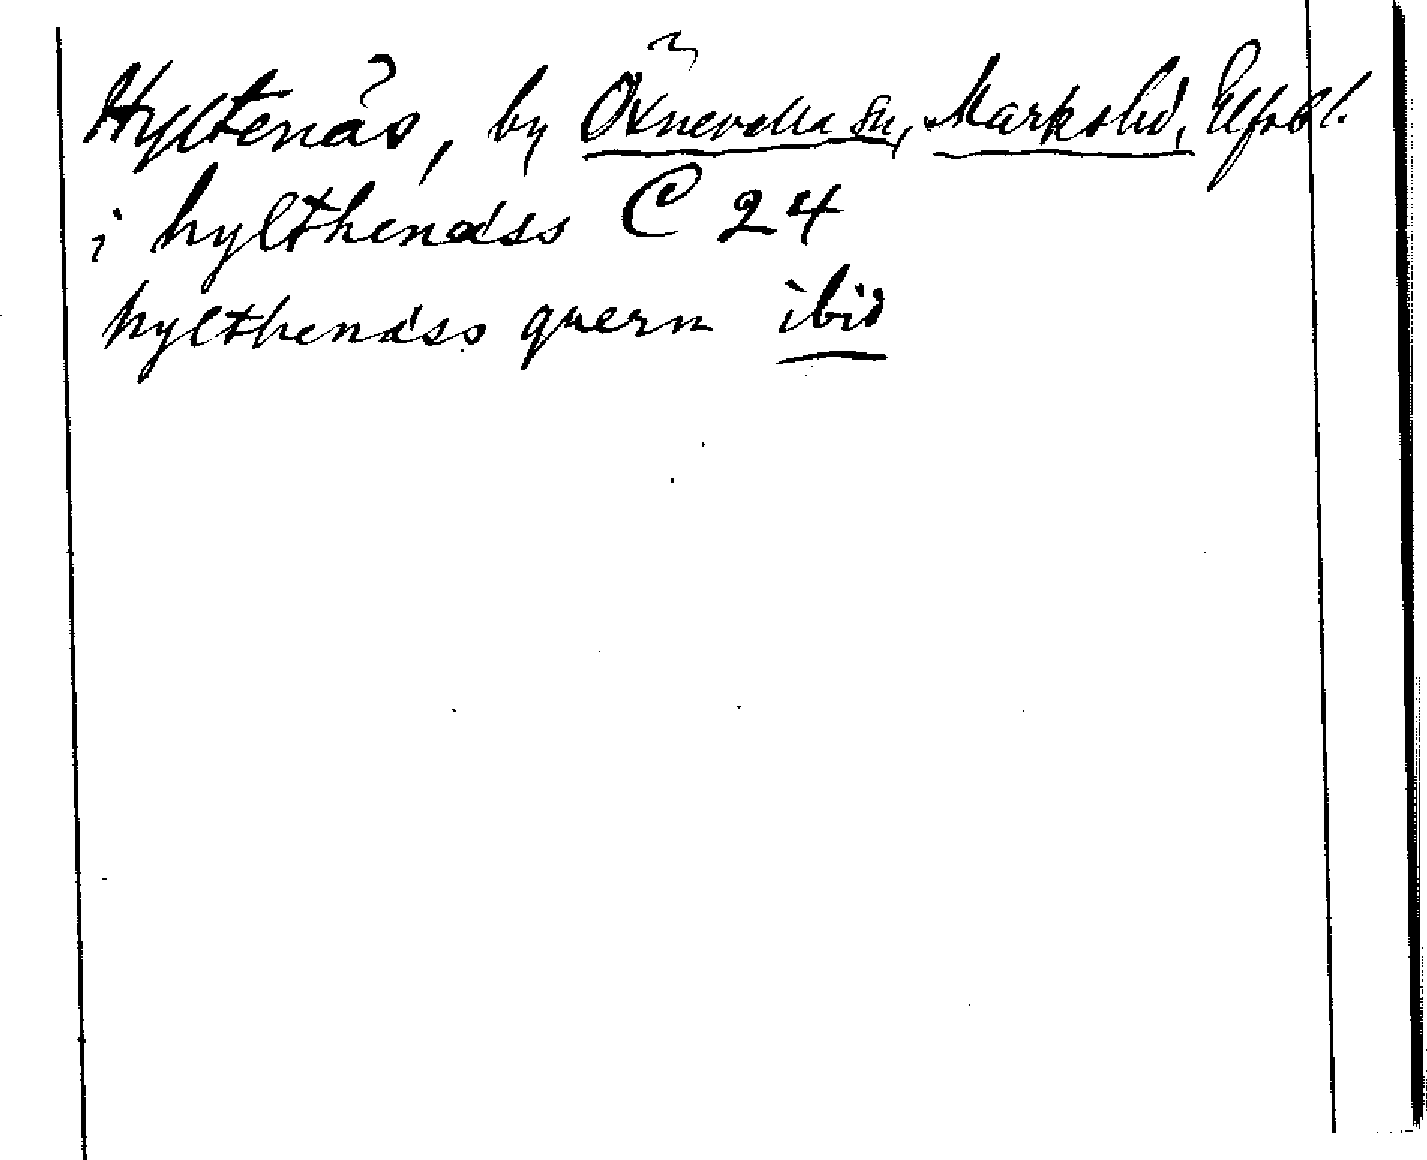 Hyltenäs, by Öxnevalla sn, Marks hd, Elfsbl.
i hylthenäss C 24
hylthenäss quern ibid